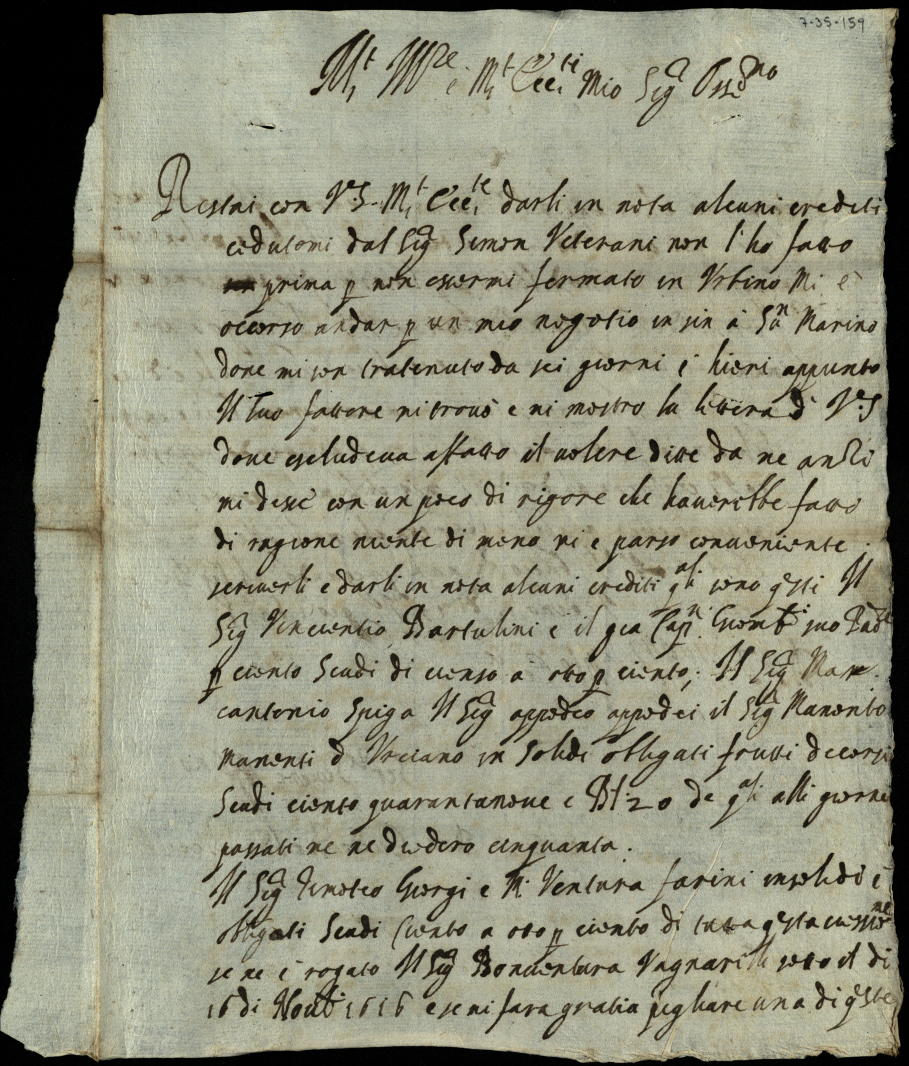 7-35-159
Mt. Illre e Mt. Ecc.ti Mio Sig.r Oss.mo
Restai con V.S. Mt. Ecc.te darli in nota alcuni crediti
cedutomi dal Sig.r Simon Veterani non l'ho fatto
prima p non essermi fermato in Urbino Mi è
occorso andar p un mio negotio in sin à San Marino
dove mi son tratenuto da sei giorni è hieri appunto
Il suo fattore mi trovò e mi mostrò la lettera d V.S
dove escludeva affatto il volere ditte da me anzi
mi desse con un poco di rigore che haverebbe fatto
di ragione niente di meno mi e parso conveniente
scriverli e darli in nota alcuni crediti q.ali sono q.sti Il
Sig.r Vincentio Bartulini e il qta Cap.n suo Pad.e
p ciento Scudi di cienso à otto p ciento; Il Sig.r Mar
cantonio Spiga Il Sig.r il Sig.r Manento
Manenti d Urciano in Solidi obligati frutti decorsi
Scudi ciento quarantanove e B 20 de q.ali alli giorni
passati me ne diedero cinquanta.
Il Sig.r Timoteo Giorgi e M. Ventura farini insolidi è
obligati Scudi Ciento a otto p ciento di tutta q.sta cessio.ne
se ne è rogato Il Sig.r Bonaventura Vagnarini sotto il di
16 di Novb 1616 e se mi fara gratia pigliare una di q.ste